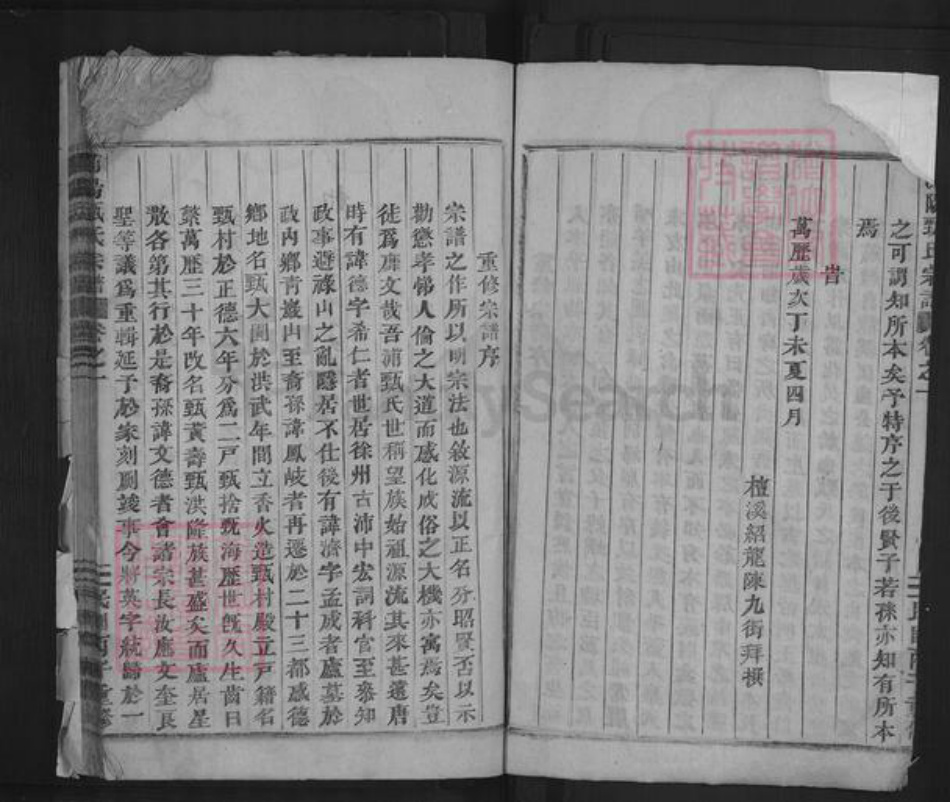 之可謂知所本矣予特序之于後賢子若孫亦知有所本
焉
旹
萬歷歲次丁未夏四月
檀溪紹龍陳九街拜撰
重修宗譜序
宗譜之作所以明宗法也敘源流以正名分昭賢否以示
勸懲孝悌人倫之大道而感化成俗之大機亦寓焉矣豈
徒爲靡文哉吾浦甄氏世稱望族始祖源流其來甚遠唐
時有諱德字希仁者世居徐州古沛中宏詞科官至叅知
政事避祿山之亂隱居不仕後有諱濟字孟成者廬墓於
政內鄉青巖山至裔孫諱鳳岐者再遷於二十三都感德
鄉地名甄大園於洪武年間立香火造甄村殿立戸籍名
甄村於正德六年分爲二戸甄捨甄海歷世旣久生齒日
蘩萬歷三十年改名甄黃壽甄洪隆族甚盛矣而廬居星
散各第其行於是裔孫諱文德者會諸宗長汝應文奎良
聖等議爲重輯延予於家刻劂竣事今將英字統歸於一
甄氏宗譜
卷之一
民國丙子重修